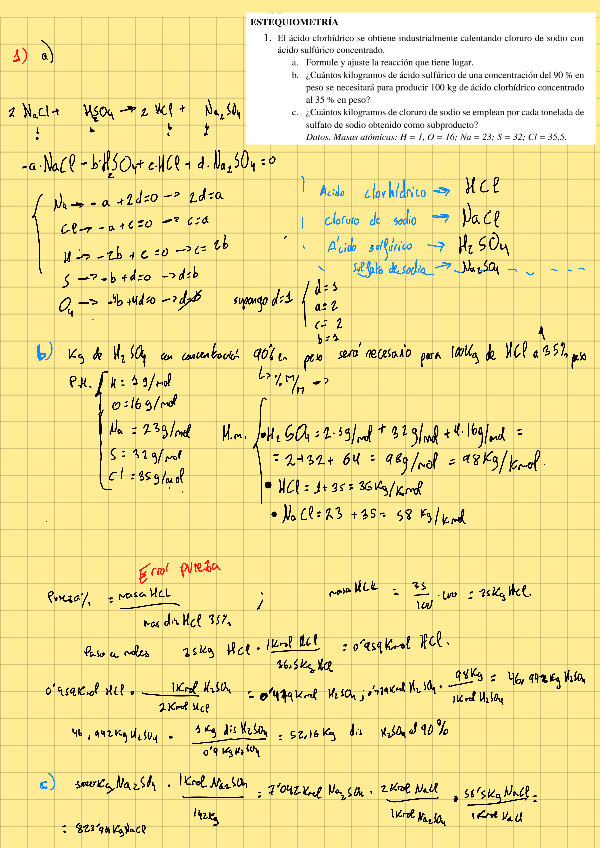 ESTEQUIOMETRÍA
1. El ácido clorhídrico se obtiene industrialmente calentando cloruro de sodio con
ácido sulfúrico concentrado.
a. Formule y ajuste la reacción que tiene lugar.
b. ¿Cuántos kilogramos de ácido sulfúrico de una concentración del 90 % en
peso se necesitará para producir 100 kg de ácido clorhídrico concentrado
al 35 % en peso?
c. ¿Cuántos kilogramos de cloruro de sodio se emplean por cada tonelada de
sulfato de sodio obtenido como subproducto?
Datos. Masas atómicas: H = 1, O = 16; Na = 23; S = 32; Cl = 35,5.
1) a)
2 NaCl + H2SO4 → 2 HCl + Na2SO4
-a·NaCl - b·H2SO4 + c·HCl + d·Na2SO4 = 0
Na → -a + 2d = 0 → 2d = a
Cl → -a + c = 0 → c = a
H → -2b + c = 0 → c = 2b
S → -b + d = 0 → d = b
O4 → -4b + 4d = 0 → d = b
supongo d = 1
d = 1
a = 2
c = 2
b = 1
Acido clorhídrico → HCl
cloruro de sodio → NaCl
Ácido sulfúrico → H2SO4
Sulfato de sodio → Na2SO4
b) Kg de H2SO4 con concentración 90% en peso será necesario para 100Kg de HCl a 35% peso
↳ % m/m →
P.M. H = 1 g/mol
O = 16 g/mol
Na = 23 g/mol
S = 32 g/mol
Cl = 35 g/mol
M.m. • H2SO4 = 2·1g/mol + 32 g/mol + 4·16g/mol =
= 2 + 32 + 64 = 98 g/mol = 98 Kg/Kmol.
• HCl = 1 + 35 = 36 Kg/Kmol
• NaCl = 23 + 35 = 58 Kg/Kmol
Error pureza
Pureza% = masa HCl / mas dis HCl 35% ; masa HCl = 35/100 · 100 = 35Kg HCl.
Paso a moles 35Kg HCl · 1Kmol HCl / 36,5Kg HCl = 0'959Kmol HCl.
0'959Kmol HCl · 1Kmol H2SO4 / 2Kmol HCl = 0'479Kmol H2SO4 ; 0'479Kmol H2SO4 · 98Kg / 1Kmol H2SO4 = 46,942Kg H2SO4
46,942Kg H2SO4 · 1Kg dis H2SO4 / 0'9Kg H2SO4 = 52,16 Kg dis H2SO4 al 90%
c) 1000Kg Na2SO4 · 1Kmol Na2SO4 / 142Kg = 7'042Kmol Na2SO4 · 2Kmol NaCl / 1Kmol Na2SO4 · 58'5Kg NaCl / 1Kmol NaCl =
= 823'94KgNaCl